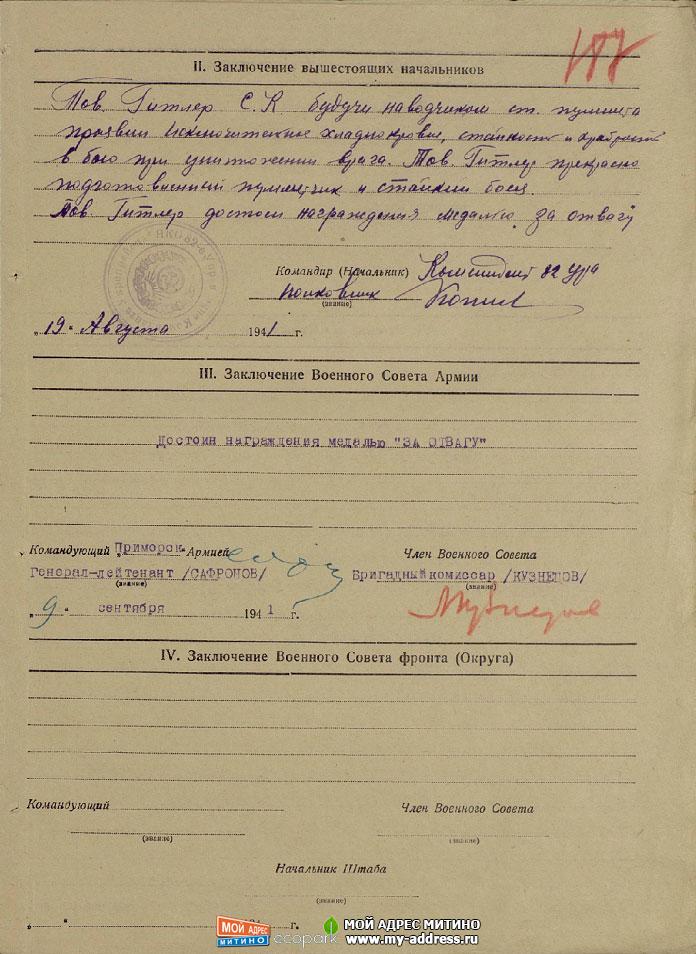 II. Заключение вышестоящих начальников
Тов. Гитлер С.К будучи наводчиком ст. пулмета
проявил исключительное хладнокровие, стойкость и храбрость
в бою при унитожении врага. Тов. Гитлер прекрасно
подготовленный пулметчик и стойкий боец.
Тов. Гитлер достоин награждения медалью за отвагу
Командир (Начальник) Комендант 82 ура
полковник
(звание)
„19" Августа 1941 г.
III. Заключение Военного Совета Армии
Достоин награждения медалью "ЗА ОТВАГУ"
Командующий Приморск. Армией
Член Военного Совета
Генерал-лейтенант /САФРОНОВ/
Бригадный комиссар /КУЗНЕЦОВ/
(звание)
(звание)
„9" сентября 1941 г.
IV. Заключение Военного Совета фронта (Округа)
Командующий
Член Военного Совета
(звание)
(звание)
Начальник Штаба
(звание)
„ " 194 г.
МОЙ АДРЕС
МИТИНО
ecopark
МОЙ АДРЕС МИТИНО
www.my-address.ru